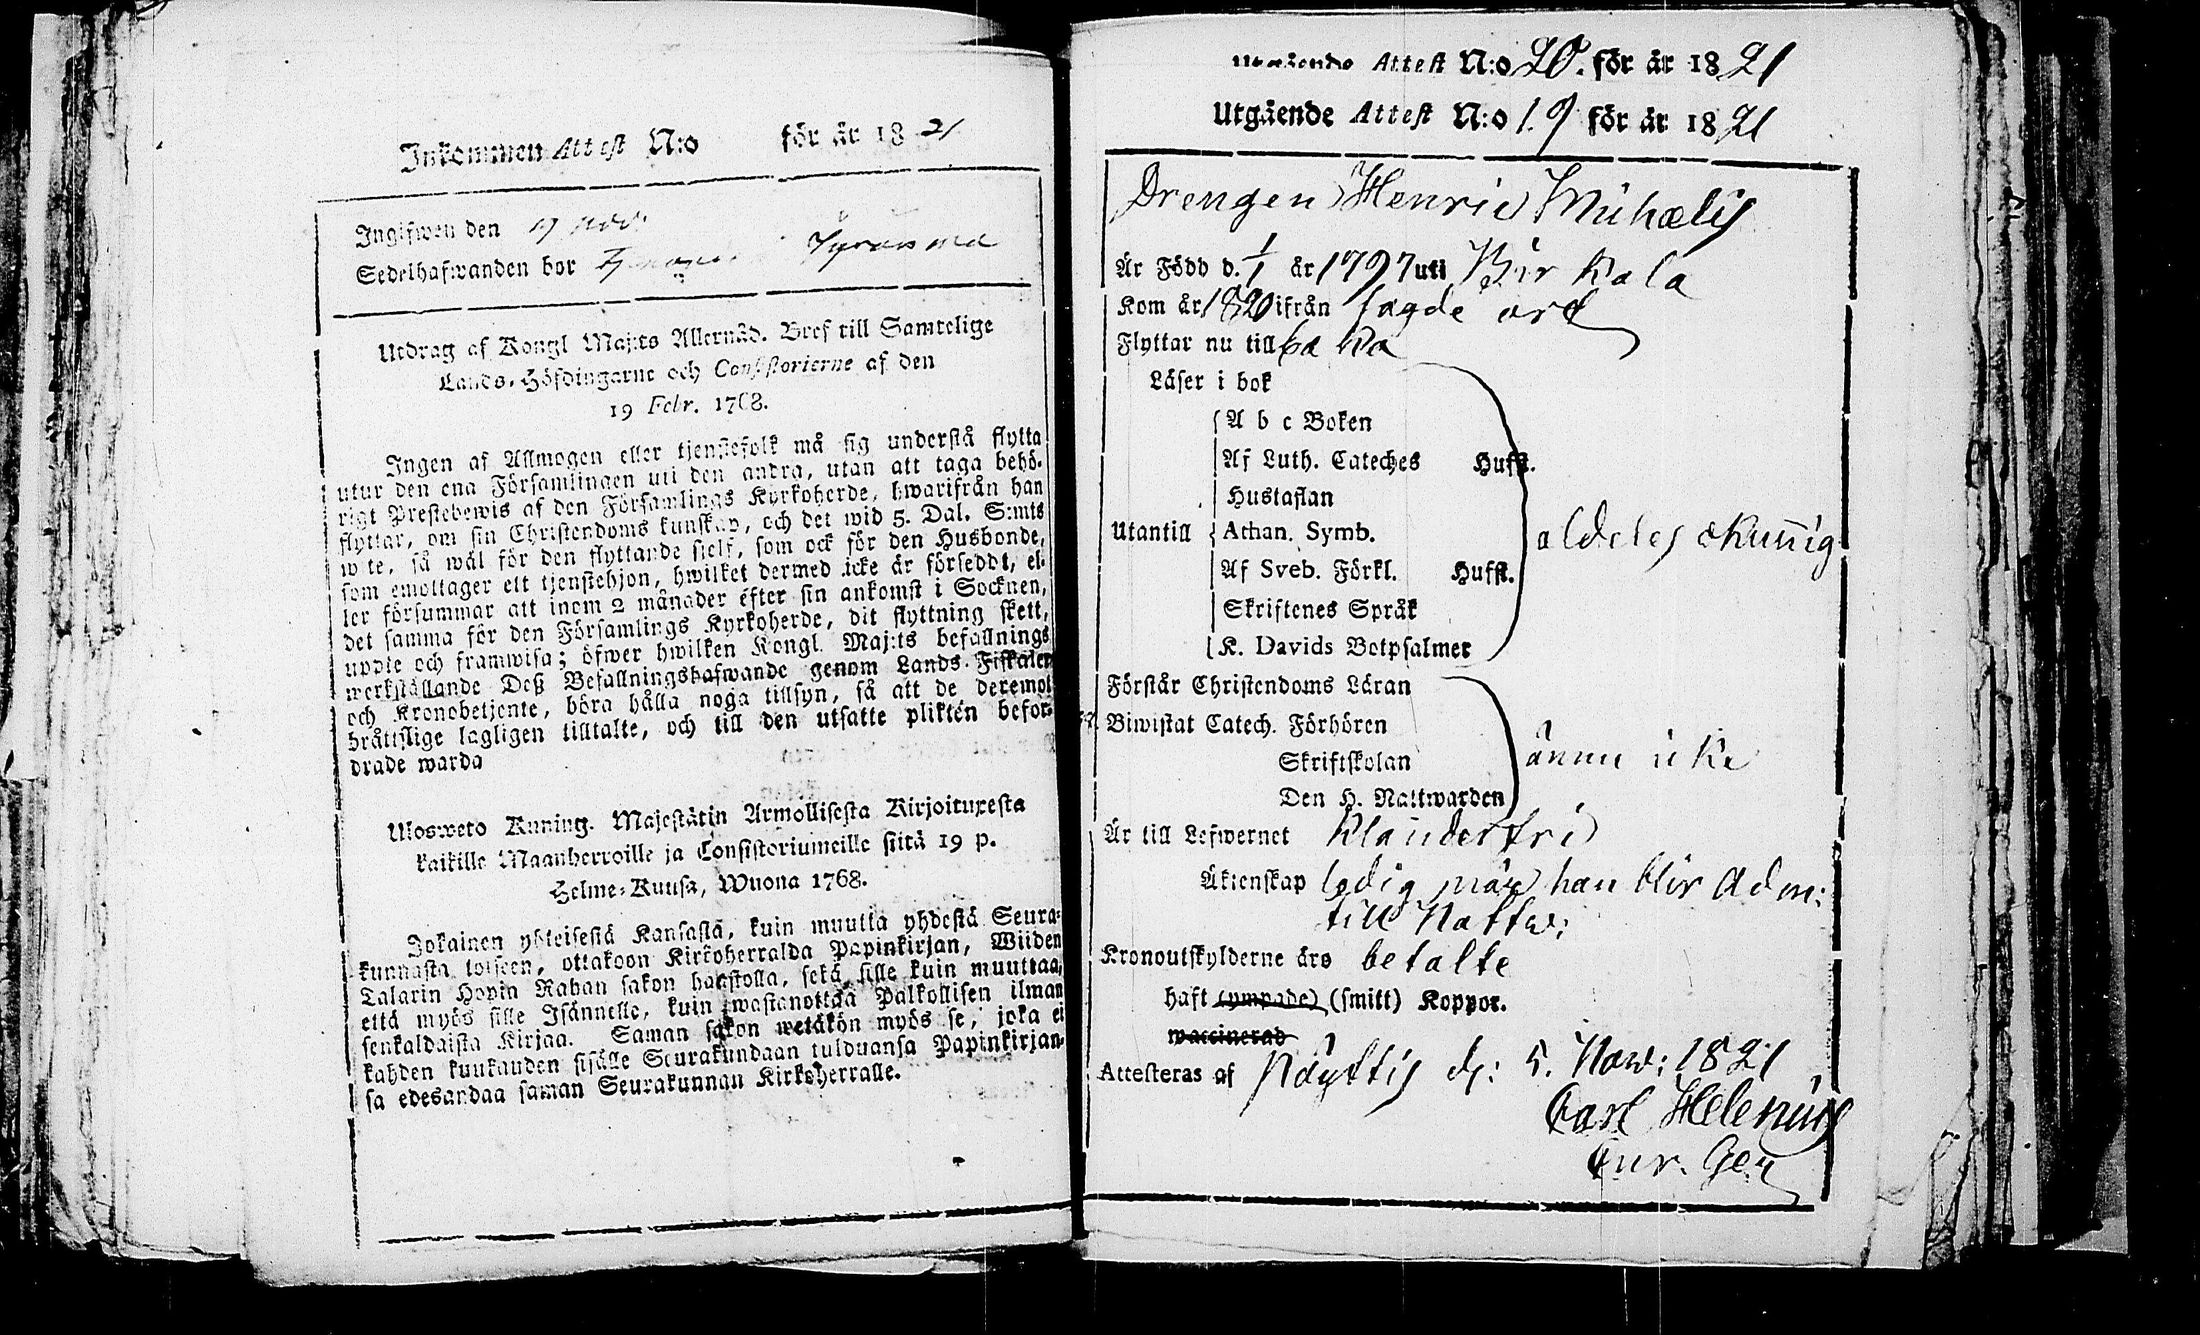 Inkommen Attest N:o för år 1821
Ingifwen den 17 nov:
Sedelhafwanden bor
Utdrag af Kongl Maj:ts Allernåd. Bref till Samtelige
Lands-Höfdingarne och Consistorierne af den
19 Febr. 1768.
Ingen af Allmogen eller tjenstefolk må sig understå flytta
utur den ena Församlingen uti den andra, utan att taga behö-
rigt Prestebewis af den Församlings Kyrkoherde, hwarifrån han
flyttar, om sin Christendoms kunskap, och det wid 5. Dal. S:mts
wite, så wäl för den flyttande sjelf, som ock för den Husbonde,
som emottager ett tjenstehjon, hwilket dermed icke är försedt, el-
ler försummar att inom 2 månader efter sin ankomst i Socknen,
det samma för den Församlings Kyrkoherde, dit flyttning skett,
uppte och framwisa; öfwer hwilken Kongl. Maj:ts befallnings
werkställande Deß Befallningshafwande genom Lands-Fiskaler
och Kronobetjente, böra hålla noga tillsyn, så att de deremot
bråttslige lagligen tilltalte, och till den utsatte plikten befor-
drade warda
Ulosweto Kuning. Majestätin Armollisesta Kirjoituxesta
kaikille Maanherroille ja Consistoriumeille siitä 19 p.
Helme-Kuusa, Wuona 1768.
Jokainen yhteisestä Kansasta, kuin muutta yhdestä Seura-
kunnasta toiseen, ottakoon Kirkoherralda Papinkirjan, Wiiden
Talarin Hopia Rahan sakon haastolla, sekä sille kuin muuttaa,
että myös sille Isännelle, kuin wastanottaa Palkollisen ilman
senkaldaista Kirjaa. Saman sakon wetäkön myös se, joka ei
kahden kuukauden sisälle Seurakundaan tulduansa Papinkirjan-
sa edesandaa saman Seurakunnan Kirkoherralle.
Utgående Attest N:o 20. för år 1821
Utgående Attest N:o 19 för år 1821
Drengen Henric Michaelis
Är Född d. 1/1 år 1797 uti Birkala
Kom år 1820 ifrån sagde ort
Flyttar nu till baka
Läser i bok
A b c Boken
Af Luth. Cateches Hufst.
Hustaflan
Utantill Athan. Symb. aldeles okunnig
Af Sveb. Förkl. Hufst.
Skriftenes Språk
K. Davids Botpsalmer
Förstår Christendoms Läran
Biwistat Catech. Förhören
Skriftskolan ännu icke
Den H. Nattwarden
Är till Lefwernet Klanderfri
Äktenskap ledig när han blir Adm:
till Nattw:
Kronoutskylderne äro betalte
haft (ympade) (smitt) Koppor.
waccinerad
Attesteras af Pöyttis d: 5. Now: 1821
Carl Helenius